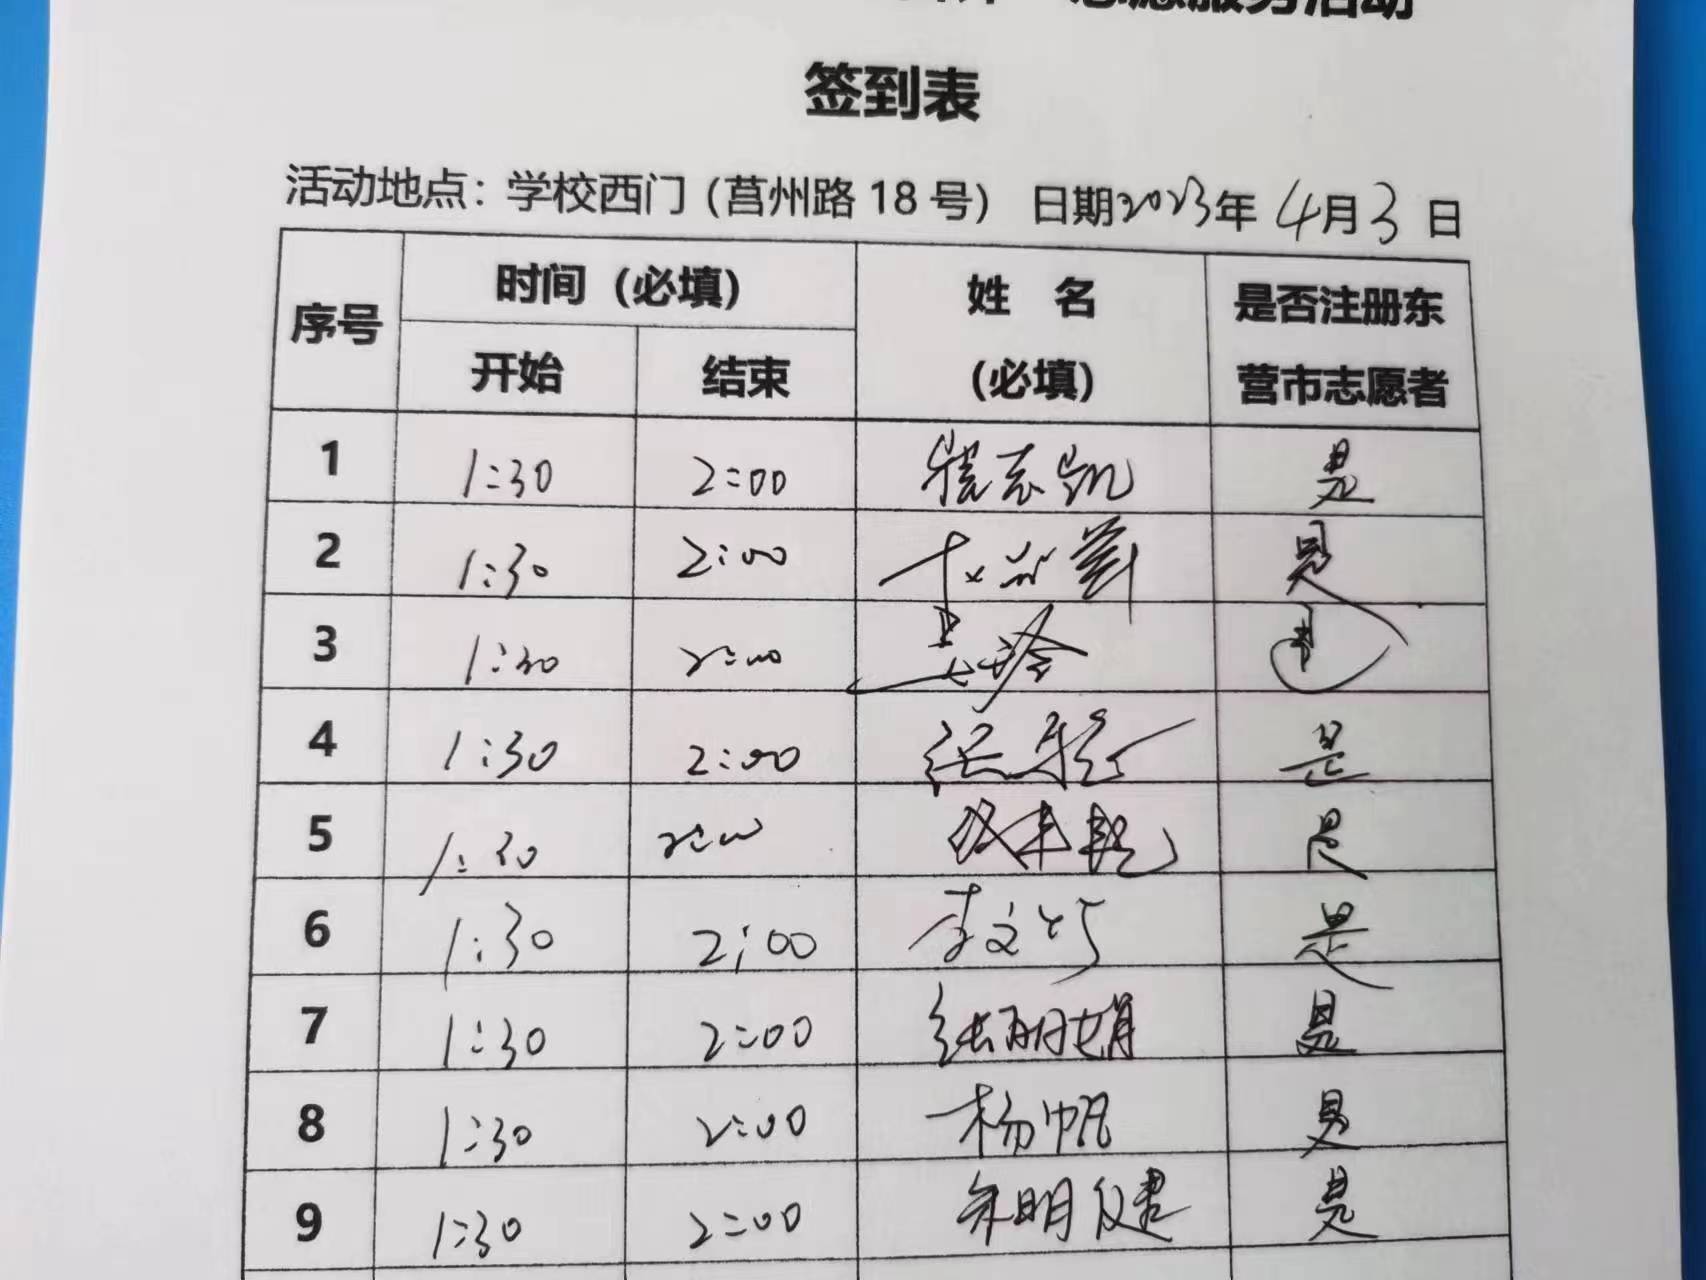 志愿服务活动
签到表
活动地点：学校西门（莒州路 18 号） 日期2023年 4月3 日
序号 时间（必填） 姓 名（必填） 是否注册东营市志愿者
开始 结束
1 1:30 2:00 志凯 是
2 1:30 2:00 是
3 1:30 2:00 是
4 1:30 2:00 张 是
5 1:30 2:00 是
6 1:30 2:00 李文 是
7 1:30 2:00 张丽娟 是
8 1:30 2:00 杨帆 是
9 1:30 2:00 朱明健 是